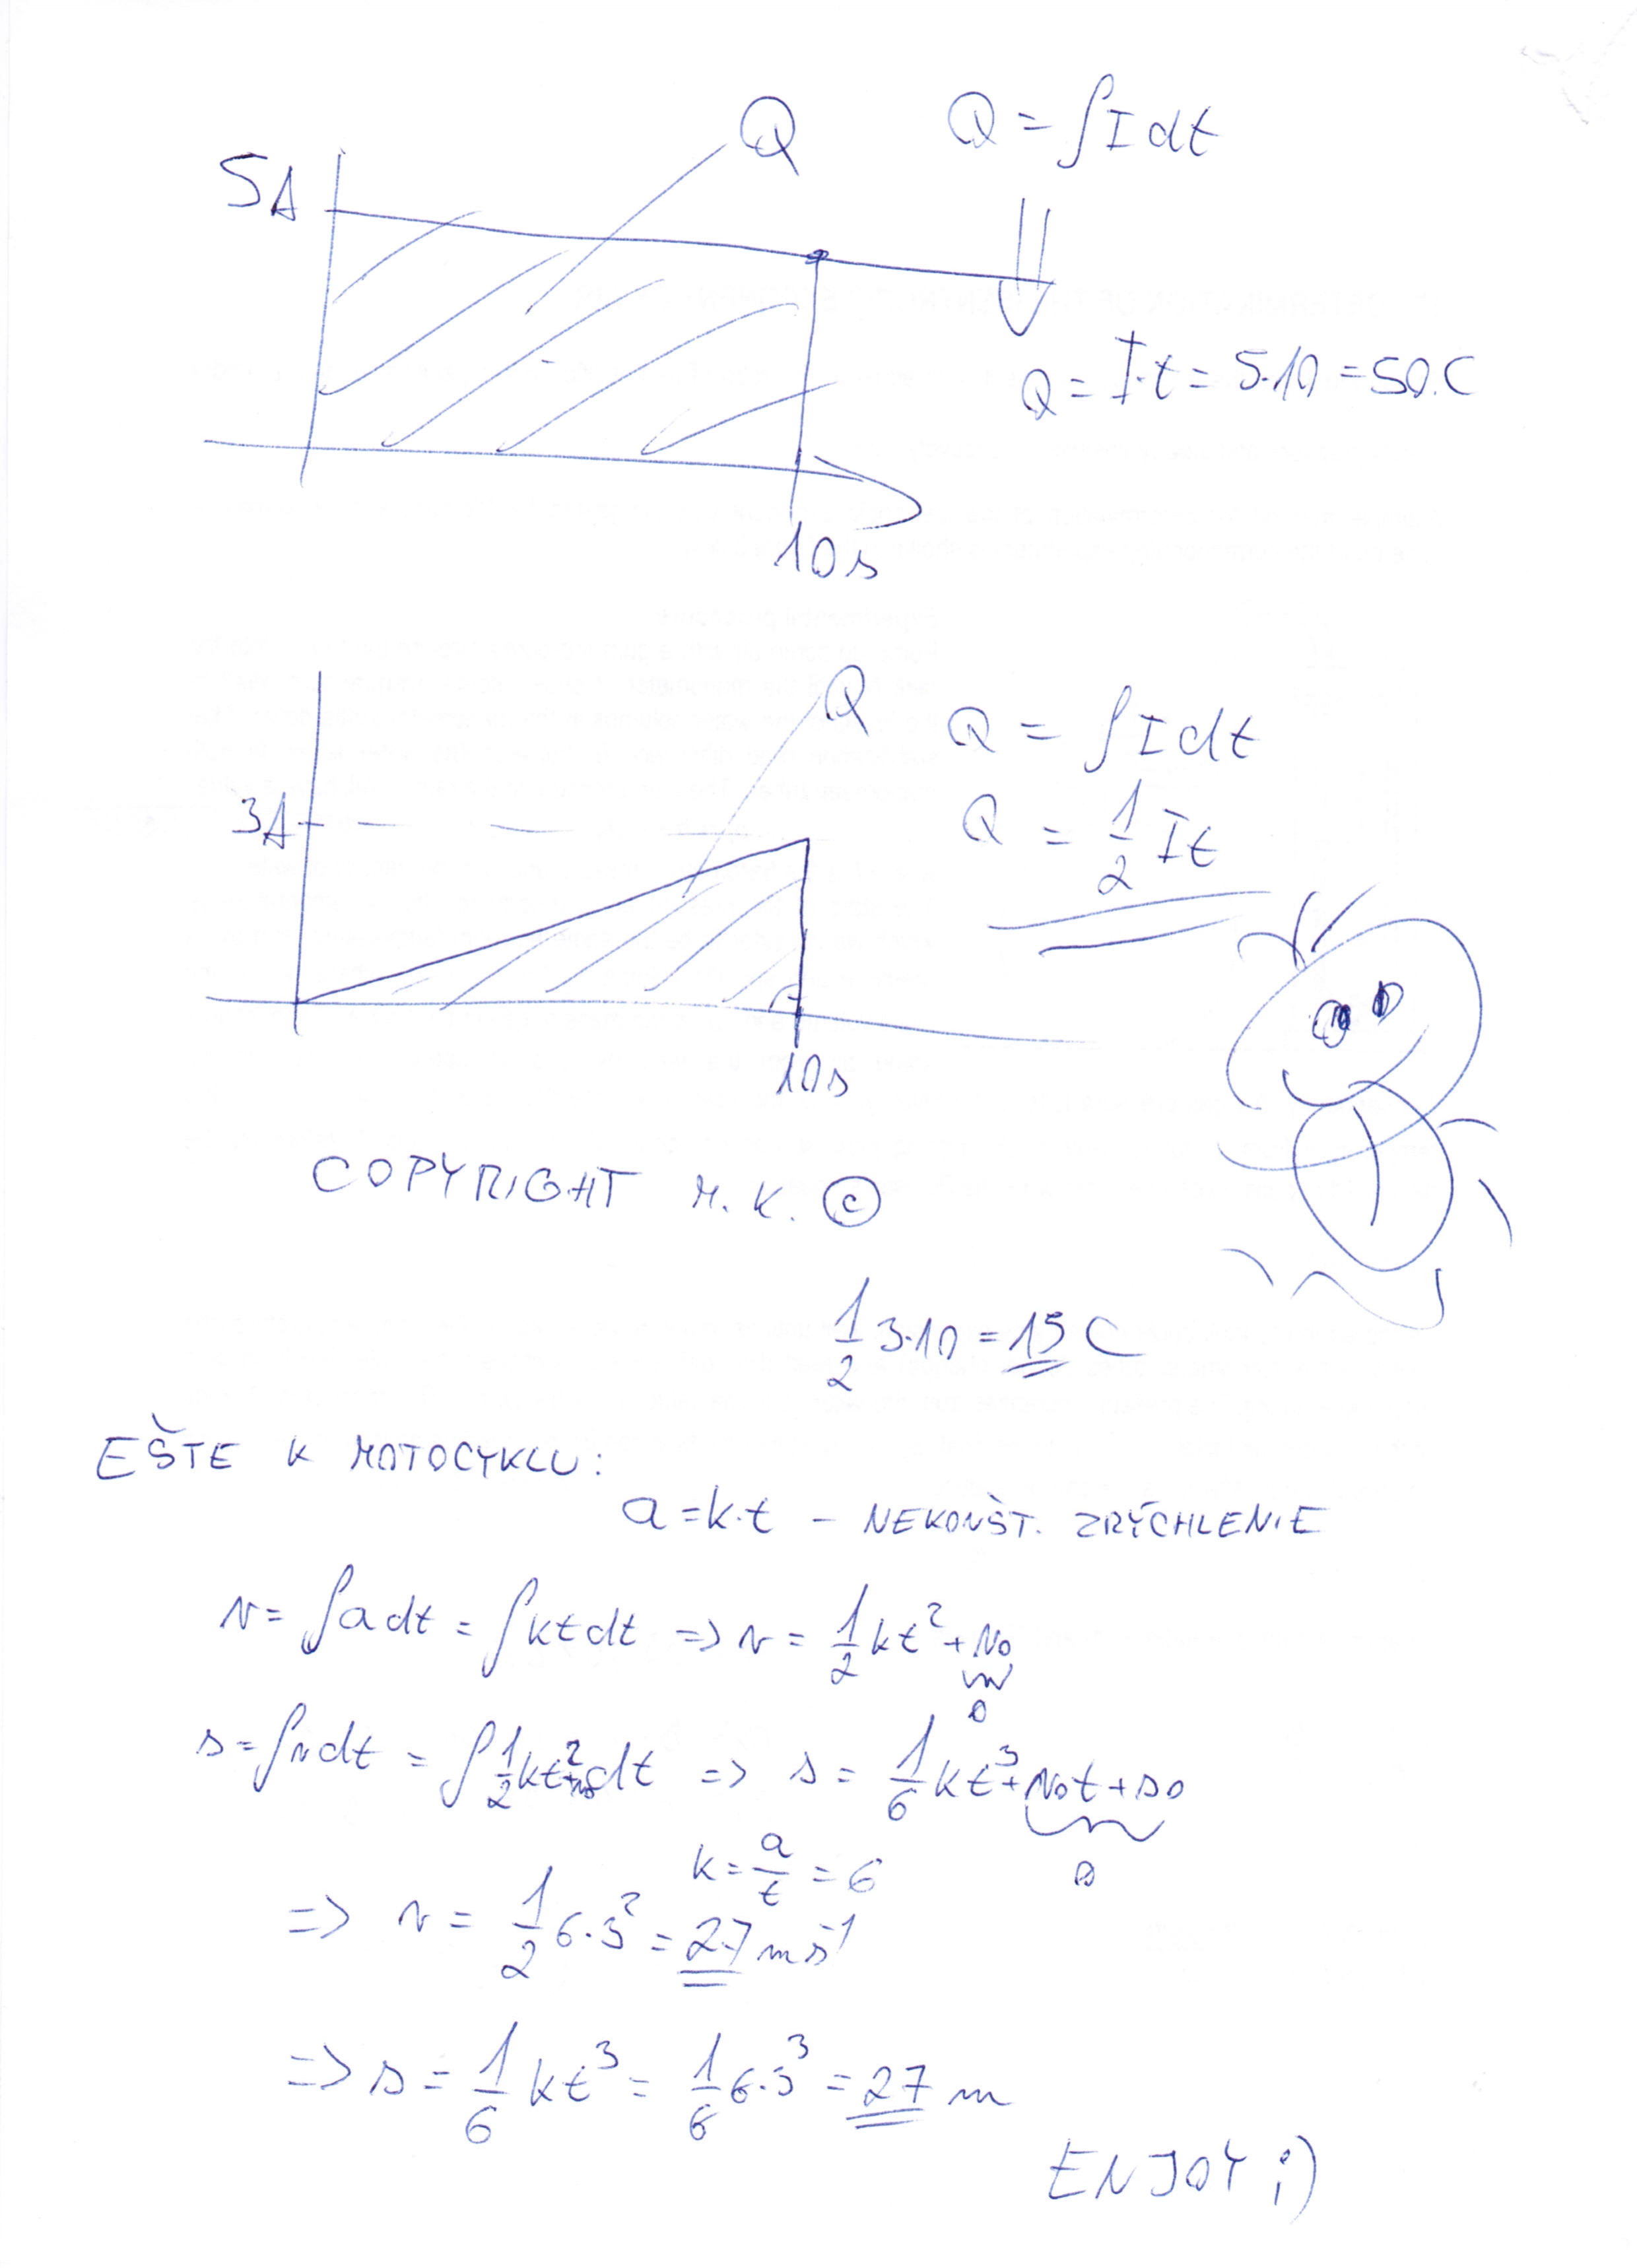 Q Q = ∫I dt
5A
Q = I·t = 5·10 = 50.C
10s
Q Q = ∫I dt
3A Q = 1/2 It
10s
COPYRIGHT M.K. ©
1/2 3·10 = 15 C
EŠTE K MOTOCYKLU:
a = k·t – NEKONŠT. ZRÝCHLENIE
v = ∫a dt = ∫kt dt => v = 1/2 kt² + v₀
0
s = ∫v dt = ∫1/2 kt² + v₀ dt => s = 1/6 kt³ + v₀t + s₀
0
k = a/t = 6
=> v = 1/2 6·3² = 27 ms⁻¹
=> s = 1/6 kt³ = 1/6 6·3³ = 27 m
ENJOY ;)